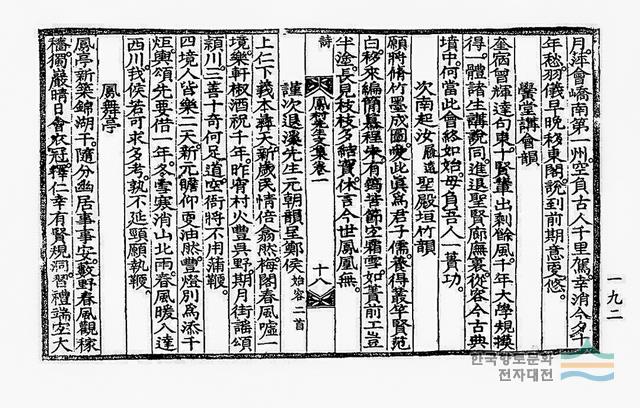 月萍會嶠南第一州空負古人千里駕幸消今夕十
年愁羽儀早晩移東閣說到前期意更悠
黌堂講會韻
奎宿曾輝達句東一賢輩出剩餘風千年大學規摸
得一體諸生講說同進退聖賢廊廡裏從容今古典
墳中何當此會終如始毋負吾人一簣功
次南起汝履道聖殿垣竹韻
願將脩竹墨成圖愛此眞爲君子儒養得叢竿賢范
白移來編簡慕程朱有筠苦節空霜雪如簣前工豈
半塗長見枝枝多結實休言今世鳳凰無
詩 鳳村先生文集卷一 十八
謹次退溪先生元朝韻呈鄭侯始容二首
上仁下義本彛天新歲民情倍翕然梅閣春風噓一
境樂軒椒酒祝千年昨宵村火豊具野期月街謠頌
潁川三善十奇何足道空衙將不用蒲鞭
四境人皆樂二天新元瞻仰更油然豊燈別爲添千
炬輿頌先要倍一年冬雪寒消山北雨春風暖入達
西川我侯若可求多考孰不延頸願執鞭
鳳舞亭
鳳亭新築錦湖干隨分幽居事事安藪野春風觀稼
穡獨巖晴日會衣冠釋仁幸有賢規洞習禮端宜大
一九二
한국향토문화
전자대전